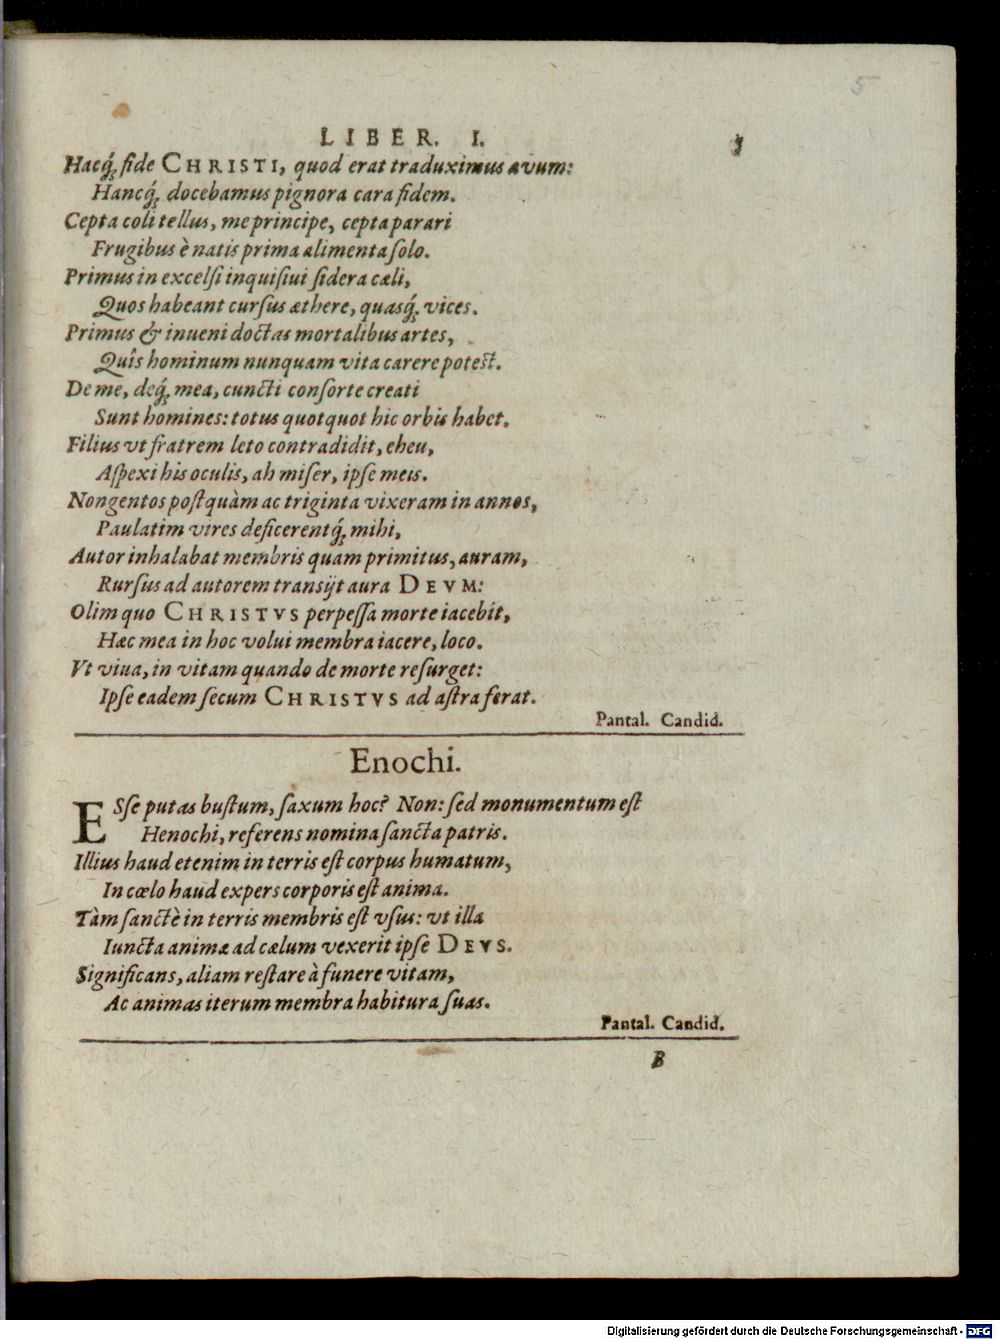 5
LIBER. I.
Hacq́; fide CHRISTI, quod erat traduximus ævum:
Hancq́; docebamus pignora cara fidem.
Cepta coli tellus, me principe, cepta parari
Frugibus è natis prima alimenta solo.
Primus in excelsi inquisiui sidera cæli,
Quos habeant cursus æthere, quasq́; vices.
Primus & inueni doctas mortalibus artes,
Quîs hominum nunquam vita carere potest.
De me, deq́; mea, cuncti consorte creati
Sunt homines: totus quotquot hic orbis habet.
Filius vt fratrem leto contradidit, eheu,
Aspexi his oculis, ah miser, ipse meis.
Nongentos postquàm ac triginta vixeram in annos,
Paulatim vires deficerentq́; mihi,
Autor inhalabat membris quam primitus, auram,
Rursus ad autorem transijt aura DEVM:
Olim quo CHRISTVS perpessa morte iacebit,
Hæc mea in hoc volui membra iacere, loco.
Vt viua, in vitam quando de morte resurget:
Ipse eadem secum CHRISTVS ad astra ferat.
Pantal. Candid.
Enochi.
ESse putas bustum, saxum hoc? Non: sed monumentum est
Henochi, referens nomina sancta patris.
Illius haud etenim in terris est corpus humatum,
In cœlo haud expers corporis est anima.
Tàm sanctè in terris membris est vsus: vt illa
Iuncta animæ ad cælum vexerit ipse DEVS.
Significans, aliam restare à funere vitam,
Ac animas iterum membra habitura suas.
Pantal. Candid.
B
Digitalisierung gefördert durch die Deutsche Forschungsgemeinschaft - DFG